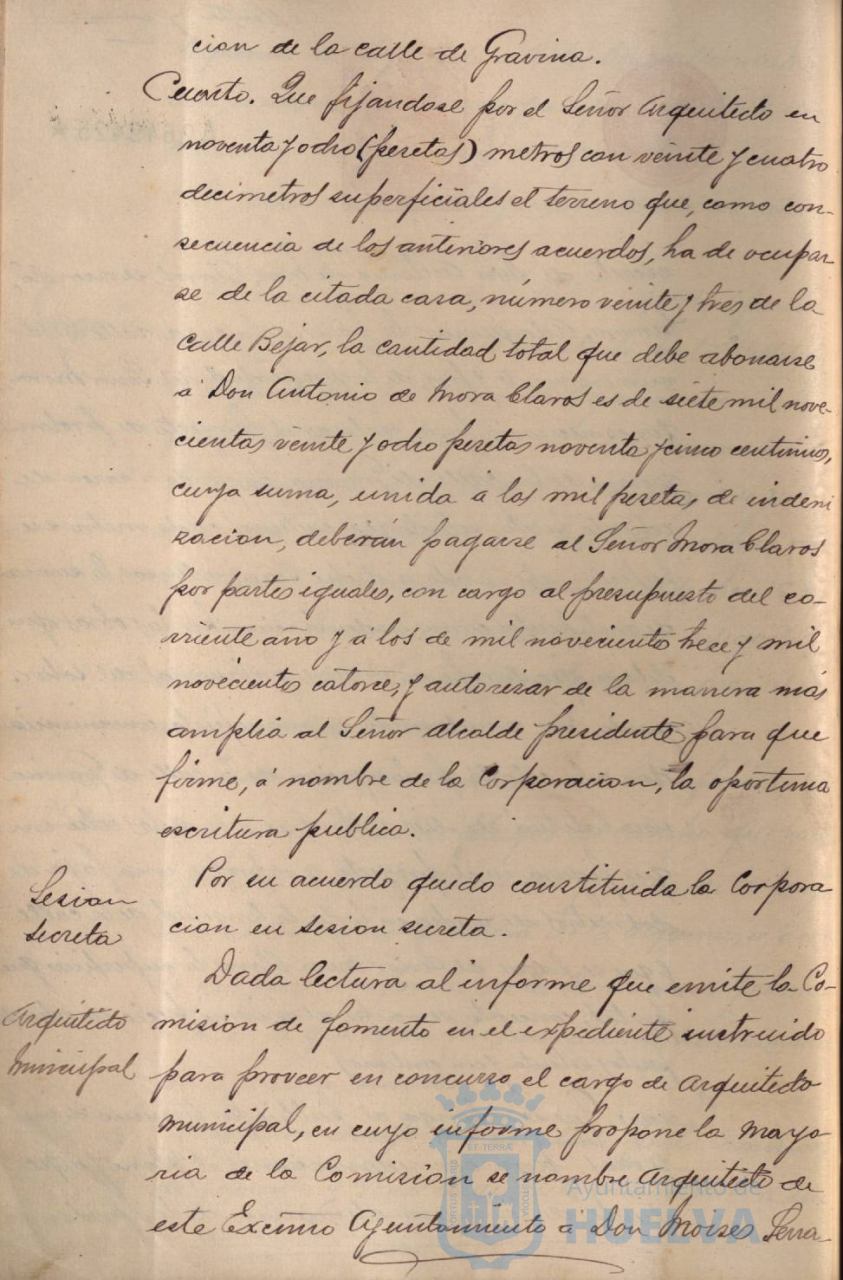 cion de la calle de Gravina.
Cuarto. Que fijandose por el Señor Arquitecto en
noventa y ocho (pesetas) metros con veinte y cuatro
decimetros superficiales el terreno que, como con-
secuencia de los anteriores acuerdos, ha de ocupar-
se de la citada casa, número veinte y tres de la
calle Bejar, la cantidad total que debe abonarse
á Don Antonio de Mora Claros es de siete mil nove-
cientas veinte y ocho pesetas noventa y cinco centimos,
cuya suma, unida á las mil pesetas de indemi
zacion, deberán pagarse al Señor Mora Claros
por partes iguales, con cargo al presupuesto del co-
rriente año y á los de mil novecientos trece y mil
novecientos catorce, y autorizar de la manera más
amplia al Señor Alcalde presidente para que
firme, á nombre de la Corporacion, la oportuna
escritura publica.
Sesion
secreta
Por su acuerdo quedo constituida la Corpora
cion en sesion secreta.
Arquitecto
Municipal
Dada lectura al informe que emite la Co-
mision de fomento en el expediente instruido
para proveer en concurso el cargo de Arquitecto
Municipal, en cuyo informe propone la mayo-
ria de la Comision se nombre Arquitecto de
este Excmo Ayuntamiento á Don Moises Serra-
Ayuntamiento de
HUELVA